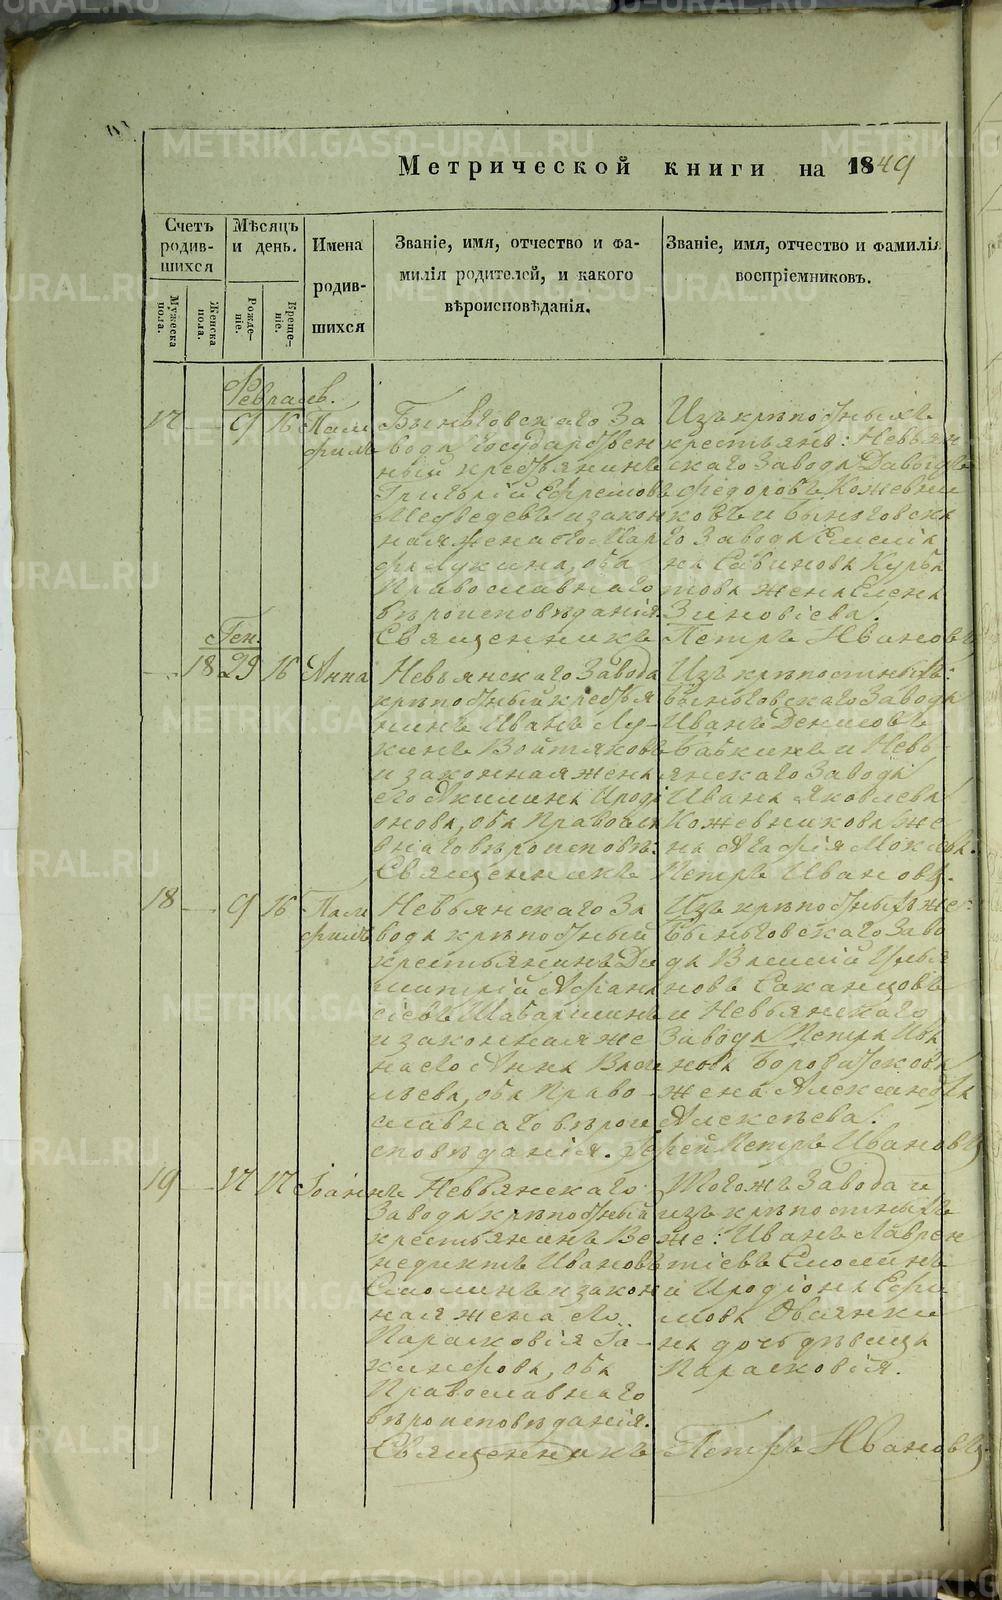 Метрической книги на 1849
Счетъ родившихся
Мѣсяцъ и день.
Имена родившихся
Званіе, имя, отчество и фамилія родителей, и какого вѣроисповѣданія.
Званіе, имя, отчество и фамилія воспріемниковъ.
Мужеска пола.
Женска пола.
Рождение.
Крещеніе.
Февраль.
17 9 16 Памфилъ
Быньговскаго За
вода государствен
ный крестьянинъ
Григорій Ефремовъ
Медведевъ и закон
ная жена его Мар
фа Лукина, оба
Православнаго
вѣроисповѣданія.
Изъ крѣпостныхъ
крестьянъ: Невьян
скаго Завода Давыдъ
Федоровъ Кожевни
ковъ и Быньговска
го Завода
на Савинова Курба
това жена Елена
Зиновіева.
Священникъ Петръ Ивановъ
Ген.
18 29 16 Анна
Невьянскаго Завода
крѣпостный крестья
нинъ Иванъ Лу-
кинъ Войтяковъ
и законная жена
его Акилина Ироді
онова, оба Правосла
внаго вѣроисповѣ:
Изъ крѣпостныхъ:
Быньговскаго Завода
Иванъ Денисовъ
Бабкинъ и Невь-
янскаго Завода
Ивана Яковлева
Кожевникова же
на Агафія Моклов.
Священникъ Петръ Ивановъ.
18 9 16 Памфилъ
Невьянскаго За
вода крѣпостный
крестьянинъ Ди
митрій Афана
сіевъ Шабаршинъ
и законная же
на его Анна Васи
льева, оба Право-
славнаго вѣрои
сповѣданія.
Изъ крѣпостныхъ же:
Быньговскаго Заво
да Василій Улья
новъ Саканцовъ
и Невьянскаго
Завода Петра Ива
нова Боровскова
жена Александра
Алексѣева.
Іерей Петръ Ивановъ
19 17 17 Іоаннъ
Невьянскаго
Завода крѣпостный
крестьянинъ Ве
недиктъ Ивановъ
Смолинъ и закон
ная жена его
Парасковія Іа-
кинфова, оба
Православнаго
вѣроисповѣданія.
Тогожъ Завода и
изъ крѣпостныхъ
же: Иванъ Лаврен
тіевъ Смолинъ
и Иродіона Ефи
мова Овсянки
на дочь дѣвица
Парасковія.
Священникъ Петръ Ивановъ
METRIKI.GASO-URAL.RU